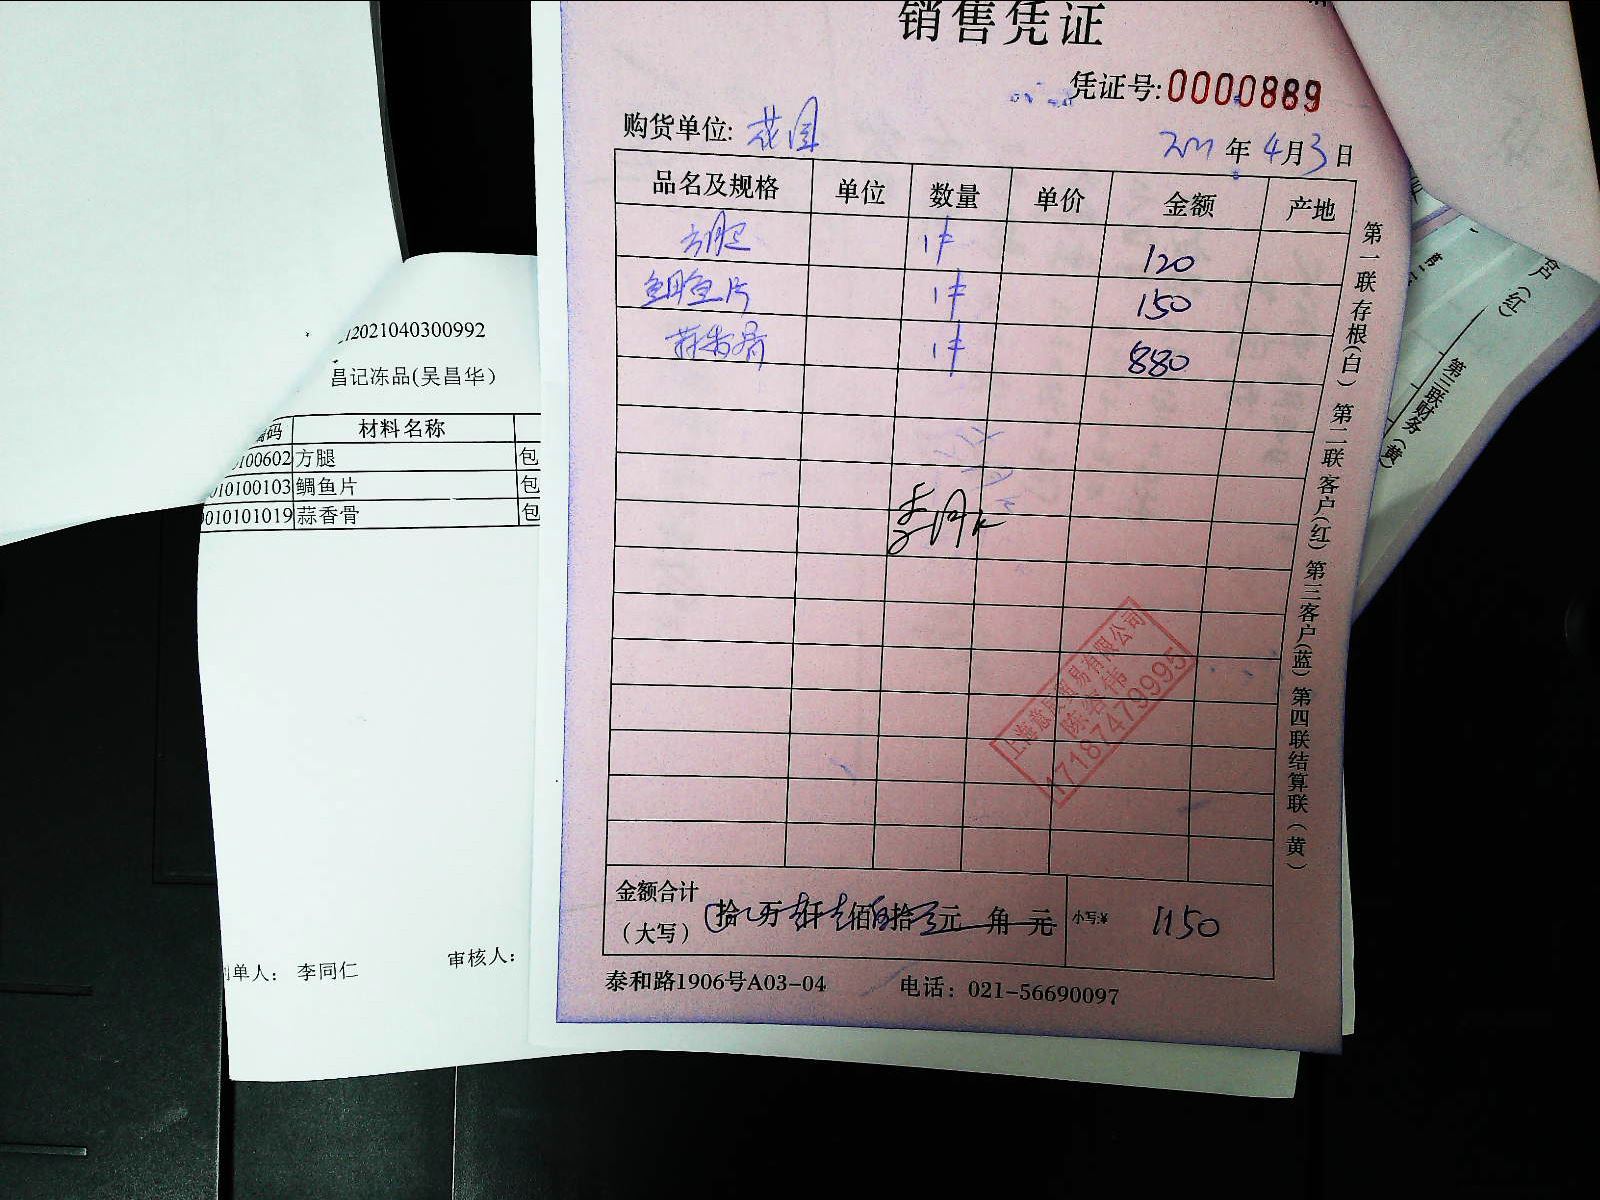 销售凭证
凭证号:0000889
购货单位: 花园
2021年4月3日
品名及规格 单位 数量 单价 金额 产地
方腿 1件 120
鲷鱼片 1件 150
蒜香骨 1件 880
金额合计
(大写) 拾 万 仟 佰 拾 元 角 元 小写:¥ 1150
泰和路1906号A03-04 电话: 021-56690097
第一联存根(白) 第二联客户(红) 第三客户(蓝) 第四联结算联(黄)
陈容伟
17187479995
2021040300992
昌记冻品(吴昌华)
编码 材料名称
100602 方腿 包
010100103 鲷鱼片 包
010101019 蒜香骨 包
制单人: 李同仁 审核人:
(红)
第三联财务(黄)